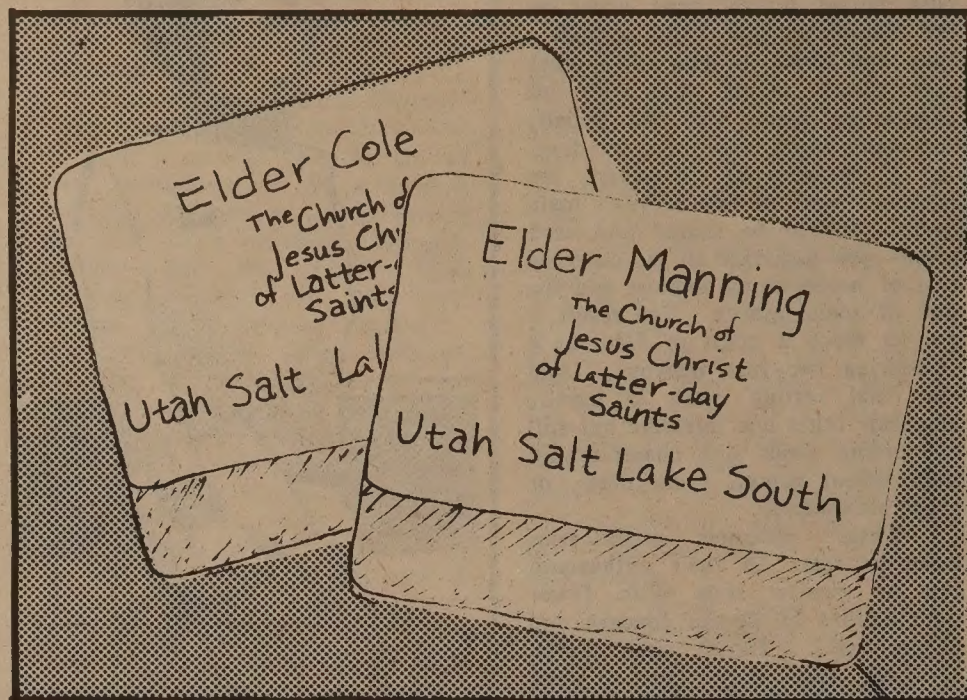 Elder Cole
The Church of
Jesus
of Latter-
Saints
Utah Salt
Elder Manning
The Church of
Jesus Christ
of Latter-day
Saints
Utah Salt Lake South